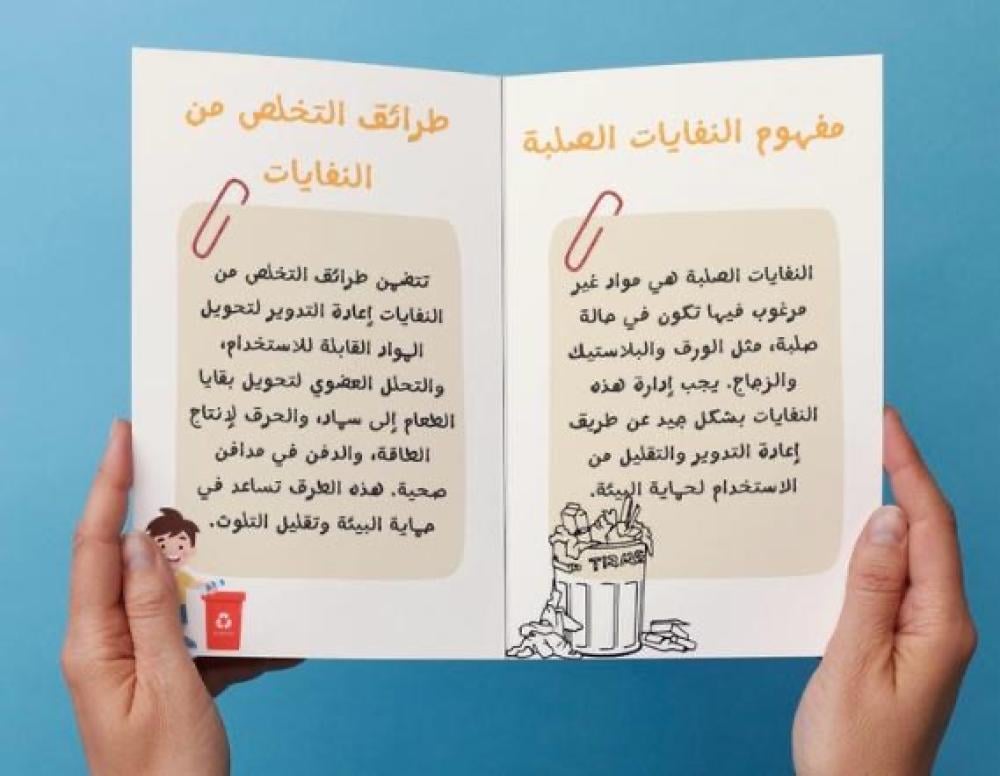 مفهوم النفايات الصلبة
النفايات الصلبة هي مواد غير
مرغوب فيها تكون في حالة
صلبة، مثل الورق والبلاستيك
والزجاج. يجب إدارة هذه
النفايات بشكل جيد عن طريق
إعادة التدوير والتقليل من
الاستخدام لحماية البيئة.
TRASH
طرائق التخلص من
النفايات
تتضمن طرائق التخلص من
النفايات إعادة التدوير لتحويل
المواد القابلة للاستخدام،
والتحلل العضوي لتحويل بقايا
الطعام إلى سماد، والحرق لإنتاج
الطاقة، والدفن في مدافن
صحية. هذه الطرق تساعد في
حماية البيئة وتقليل التلوث.